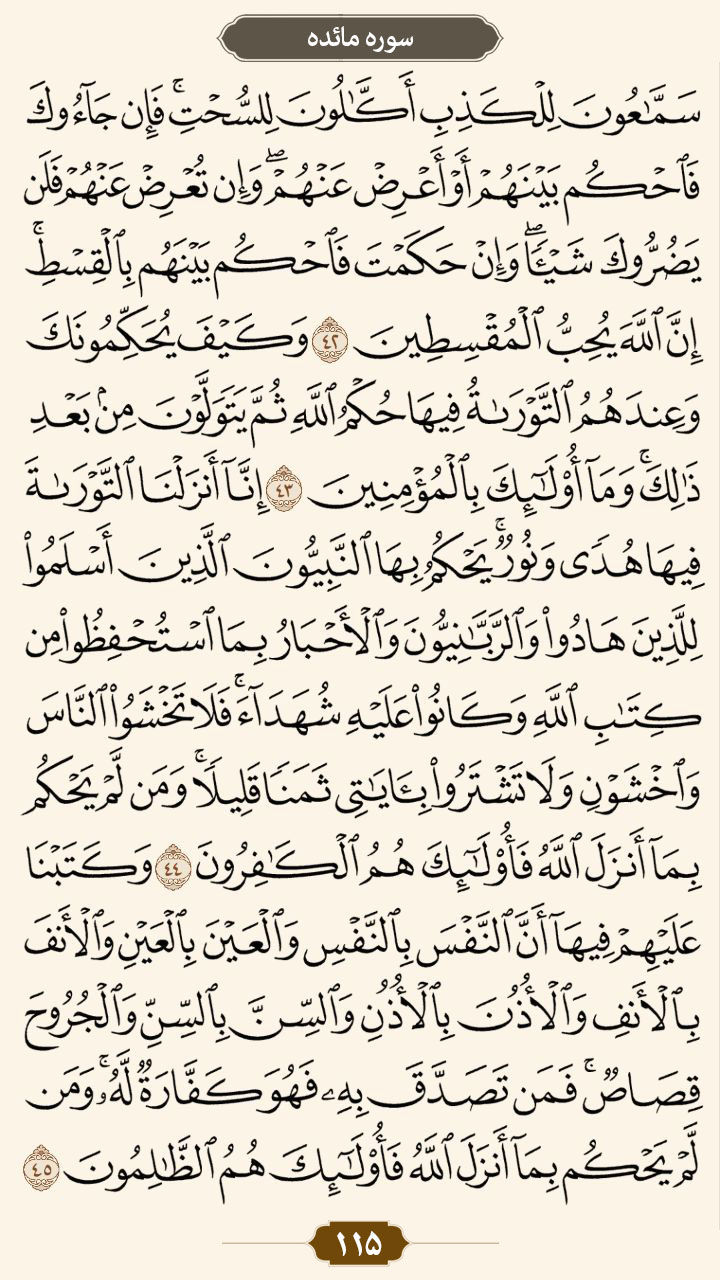 سوره مائده
سَمَّٰعُونَ لِلْكَذِبِ أَكَّٰلُونَ لِلسُّحْتِ ۚ فَإِن جَآءُوكَ
فَٱحْكُم بَيْنَهُمْ أَوْ أَعْرِضْ عَنْهُمْ ۖ وَإِن تُعْرِضْ عَنْهُمْ فَلَن
يَضُرُّوكَ شَيْـًٔا ۖ وَإِنْ حَكَمْتَ فَٱحْكُم بَيْنَهُم بِٱلْقِسْطِ ۚ
إِنَّ ٱللَّهَ يُحِبُّ ٱلْمُقْسِطِينَ ٤٢ وَكَيْفَ يُحَكِّمُونَكَ
وَعِندَهُمُ ٱلتَّوْرَىٰةُ فِيهَا حُكْمُ ٱللَّهِ ثُمَّ يَتَوَلَّوْنَ مِنۢ بَعْدِ
ذَٰلِكَ ۚ وَمَآ أُوْلَٰٓئِكَ بِٱلْمُؤْمِنِينَ ٤٣ إِنَّآ أَنزَلْنَا ٱلتَّوْرَىٰةَ
فِيهَا هُدًى وَنُورٌ ۚ يَحْكُمُ بِهَا ٱلنَّبِيُّونَ ٱلَّذِينَ أَسْلَمُواْ
لِلَّذِينَ هَادُواْ وَٱلرَّبَّٰنِيُّونَ وَٱلْأَحْبَارُ بِمَا ٱسْتُحْفِظُواْ مِن
كِتَٰبِ ٱللَّهِ وَكَانُواْ عَلَيْهِ شُهَدَآءَ ۚ فَلَا تَخْشَوُاْ ٱلنَّاسَ
وَٱخْشَوْنِ وَلَا تَشْتَرُواْ بِـَٔايَٰتِى ثَمَنًا قَلِيلًا ۚ وَمَن لَّمْ يَحْكُم
بِمَآ أَنزَلَ ٱللَّهُ فَأُوْلَٰٓئِكَ هُمُ ٱلْكَٰفِرُونَ ٤٤ وَكَتَبْنَا
عَلَيْهِمْ فِيهَآ أَنَّ ٱلنَّفْسَ بِٱلنَّفْسِ وَٱلْعَيْنَ بِٱلْعَيْنِ وَٱلْأَنفَ
بِٱلْأَنفِ وَٱلْأُذُنَ بِٱلْأُذُنِ وَٱلسِّنَّ بِٱلسِّنِّ وَٱلْجُرُوحَ
قِصَاصٌ ۚ فَمَن تَصَدَّقَ بِهِۦ فَهُوَ كَفَّارَةٌ لَّهُۥ ۚ وَمَن
لَّمْ يَحْكُم بِمَآ أَنزَلَ ٱللَّهُ فَأُوْلَٰٓئِكَ هُمُ ٱلظَّٰلِمُونَ ٤٥
۱۱۵